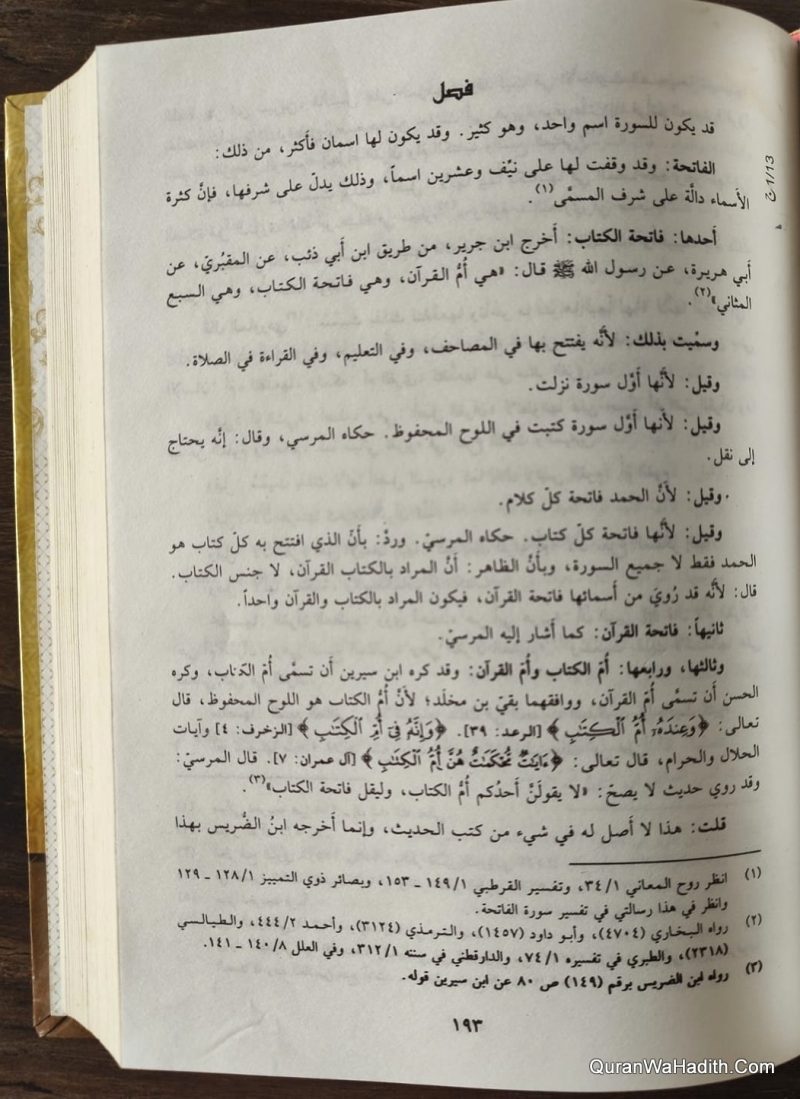 فصل
قد يكون للسورة اسم واحد، وهو كثير. وقد يكون لها اسمان فأكثر، من ذلك:
الفاتحة: وقد وقفت لها على نيِّف وعشرين اسماً، وذلك يدلّ على شرفها، فإنَّ كثرة
الأسماء دالَّة على شرف المسمَّى(١).
ج1/13
أحدها: فاتحة الكتاب: أخرج ابن جرير، من طريق ابن أبي ذئب، عن المقبُريّ، عن
أبي هريرة، عن رسول الله ﷺ قال: «هي أُمُّ القرآن، وهي فاتحة الكتاب، وهي السبع
المثاني»(٢).
وسمِّيت بذلك: لأنَّه يفتتح بها في المصاحف، وفي التعليم، وفي القراءة في الصلاة.
وقيل: لأنَّها أوَّل سورة نزلت.
وقيل: لأنها أوَّل سورة كتبت في اللوح المحفوظ. حكاه المرسي، وقال: إنَّه يحتاج
إلى نقل.
وقيل: لأنَّ الحمد فاتحة كلّ كلام.
وقيل: لأنَّها فاتحة كلّ كتاب. حكاه المرسيّ. وردّ: بأنّ الذي افتتح به كلّ كتاب هو
الحمد فقط لا جميع السورة، وبأنَّ الظاهر: أنَّ المراد بالكتاب القرآن، لا جنس الكتاب.
قال: لأنَّه قد رُويَ من أسمائها فاتحة القرآن، فيكون المراد بالكتاب والقرآن واحداً.
ثانيهاً: فاتحة القرآن: كما أشار إليه المرسيّ.
وثالثها، ورابعها: أُمّ الكتاب وأُمّ القرآن: وقد كره ابن سيرين أن تسمَّى أُمّ الكتاب، وكره
الحسن أن تسمَّى أُمّ القرآن، ووافقهما بقيّ بن مخلَد؛ لأنَّ أُمَّ الكتاب هو اللوح المحفوظ، قال
تعالى: ﴿وَعِندَهُۥٓ أُمُّ ٱلْكِتَٰبِ﴾ [الرعد: ٣٩]. ﴿وَإِنَّهُۥ فِىٓ أُمِّ ٱلْكِتَٰبِ﴾ [الزخرف: ٤] وآيات
الحلال والحرام، قال تعالى: ﴿ءَايَٰتٌ مُّحْكَمَٰتٌ هُنَّ أُمُّ ٱلْكِتَٰبِ﴾ [آل عمران: ٧]. قال المرسيّ:
وقد روي حديث لا يصحّ: «لا يقولَنَّ أحدُكم أُمُّ الكتاب، وليقل فاتحة الكتاب»(٣).
قلت: هذا لا أصل له في شيء من كتب الحديث، وإنما أخرجه ابنُ الضُّريس بهذا
(١) انظر روح المعاني ٣٤/١، وتفسير القرطبي ١٤٩/١ ـ ١٥٣، وبصائر ذوي التمييز ١٢٨/١ ـ ١٢٩
وانظر في هذا رسالتي في تفسير سورة الفاتحة.
(٢) رواه البخاري (٤٧٠٤)، وأبو داود (١٤٥٧)، والترمذي (٣١٢٤)، وأحمد ٤٤٤/٢، والطيالسي
(٢٣١٨)، والطبري في تفسيره ٧٤/١، والدارقطني في سننه ٣١٢/١، وفي العلل ١٤٠/٨ ـ ١٤١.
(٣) رواه ابن الضريس برقم (١٤٩) ص ٨٠ عن ابن سيرين قوله.
١٩٣
QuranWaHadith.Com